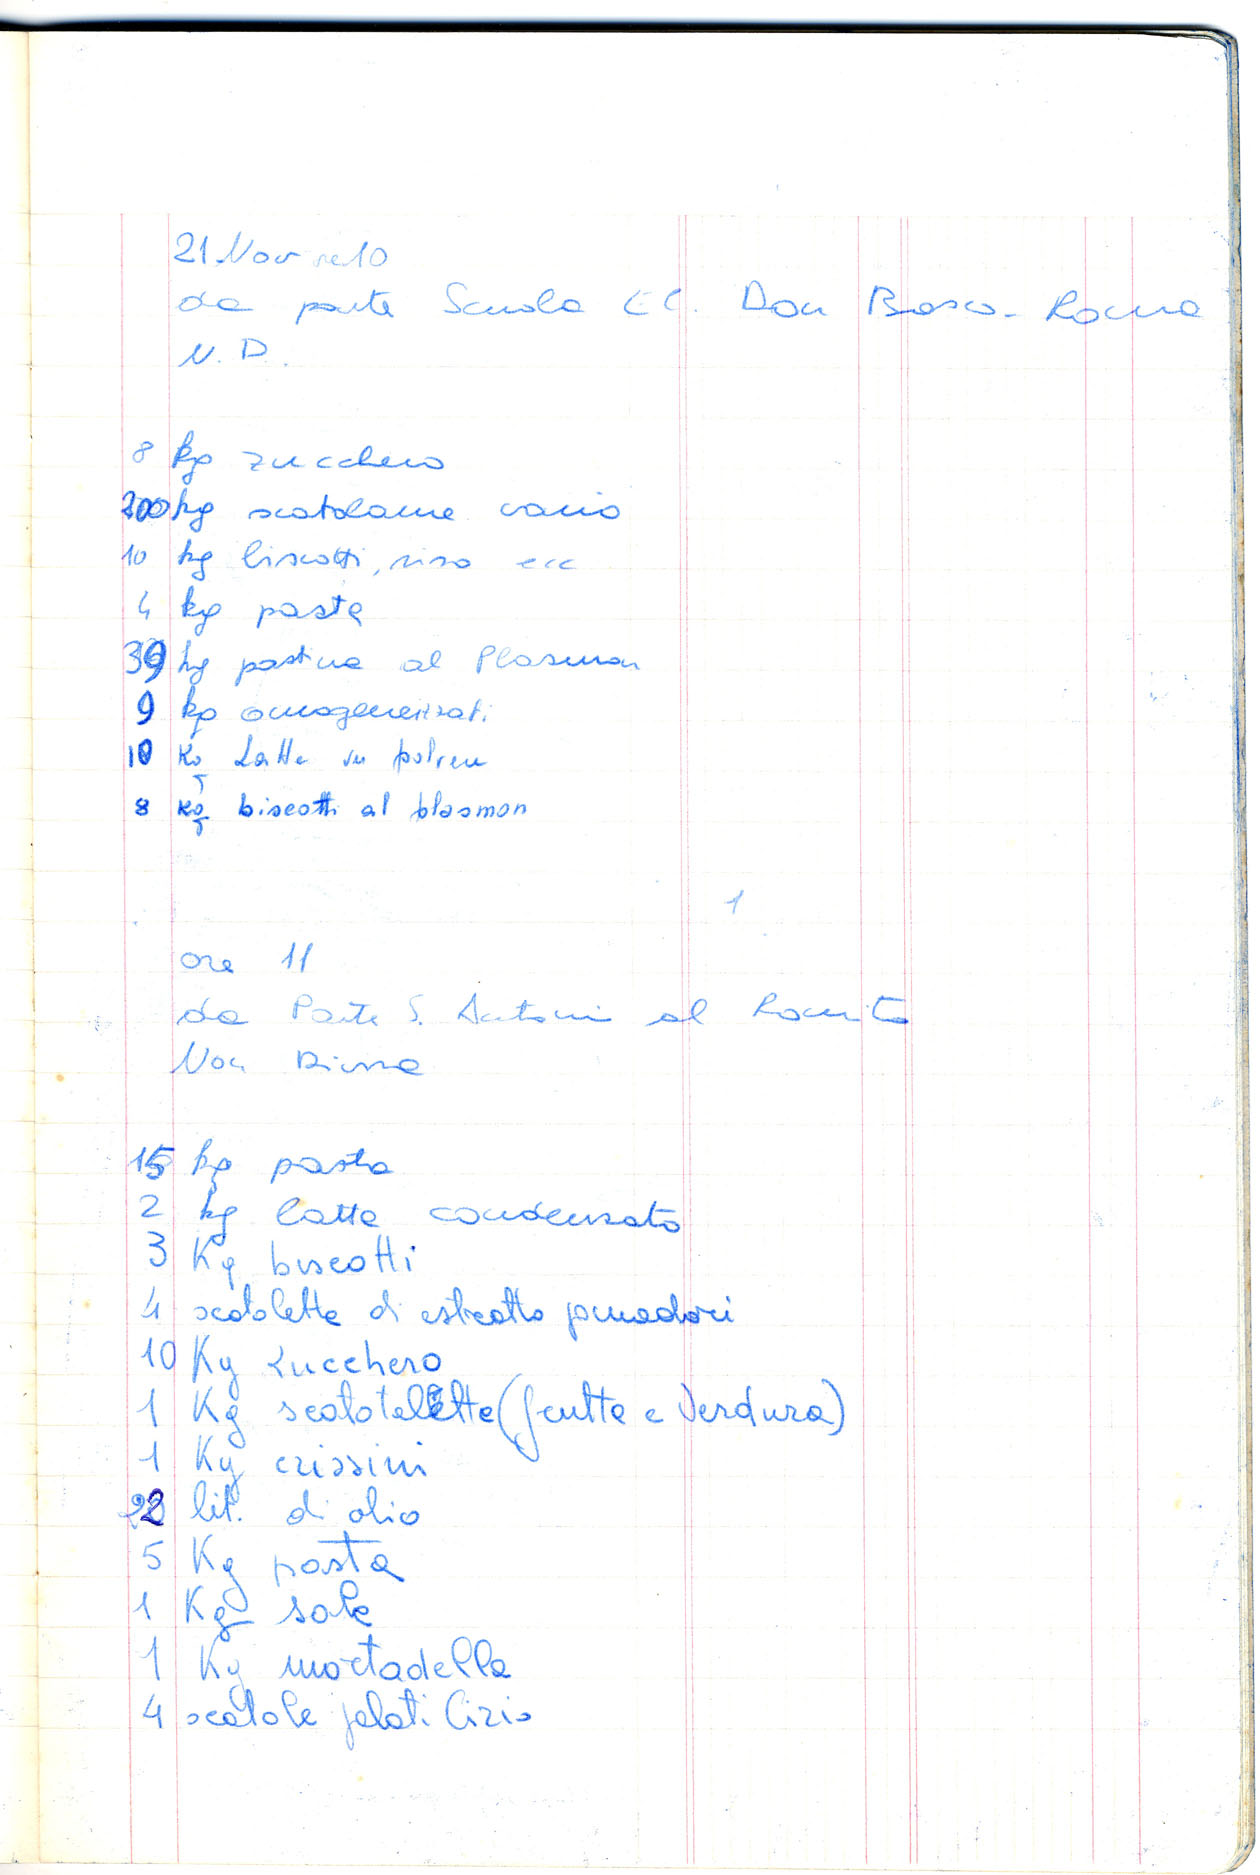 21 Nov ore 10
da parte Scuola El. Don Bosco - Roma
N. D.
8 kg zucchero
200 kg scatolame vario
10 kg biscotti, riso ecc
4 kg pasta
39 kg pastina al Plasmon
9 kg omogeneizzati
10 Kg Latte in polvere
8 Kg biscotti al plasmon
1
ore 11
da Parte S. Antonio al Romito
Non Diurna
15 kg pasta
2 kg latte condensato
3 Kg biscotti
4 scatolette di estratto pomodori
10 Kg zucchero
1 Kg (frutta e Verdura)
1 Kg crissini
22 lit. di olio
5 Kg pasta
1 Kg sale
1 Kg mortadella
4 scatole pelati Cirio